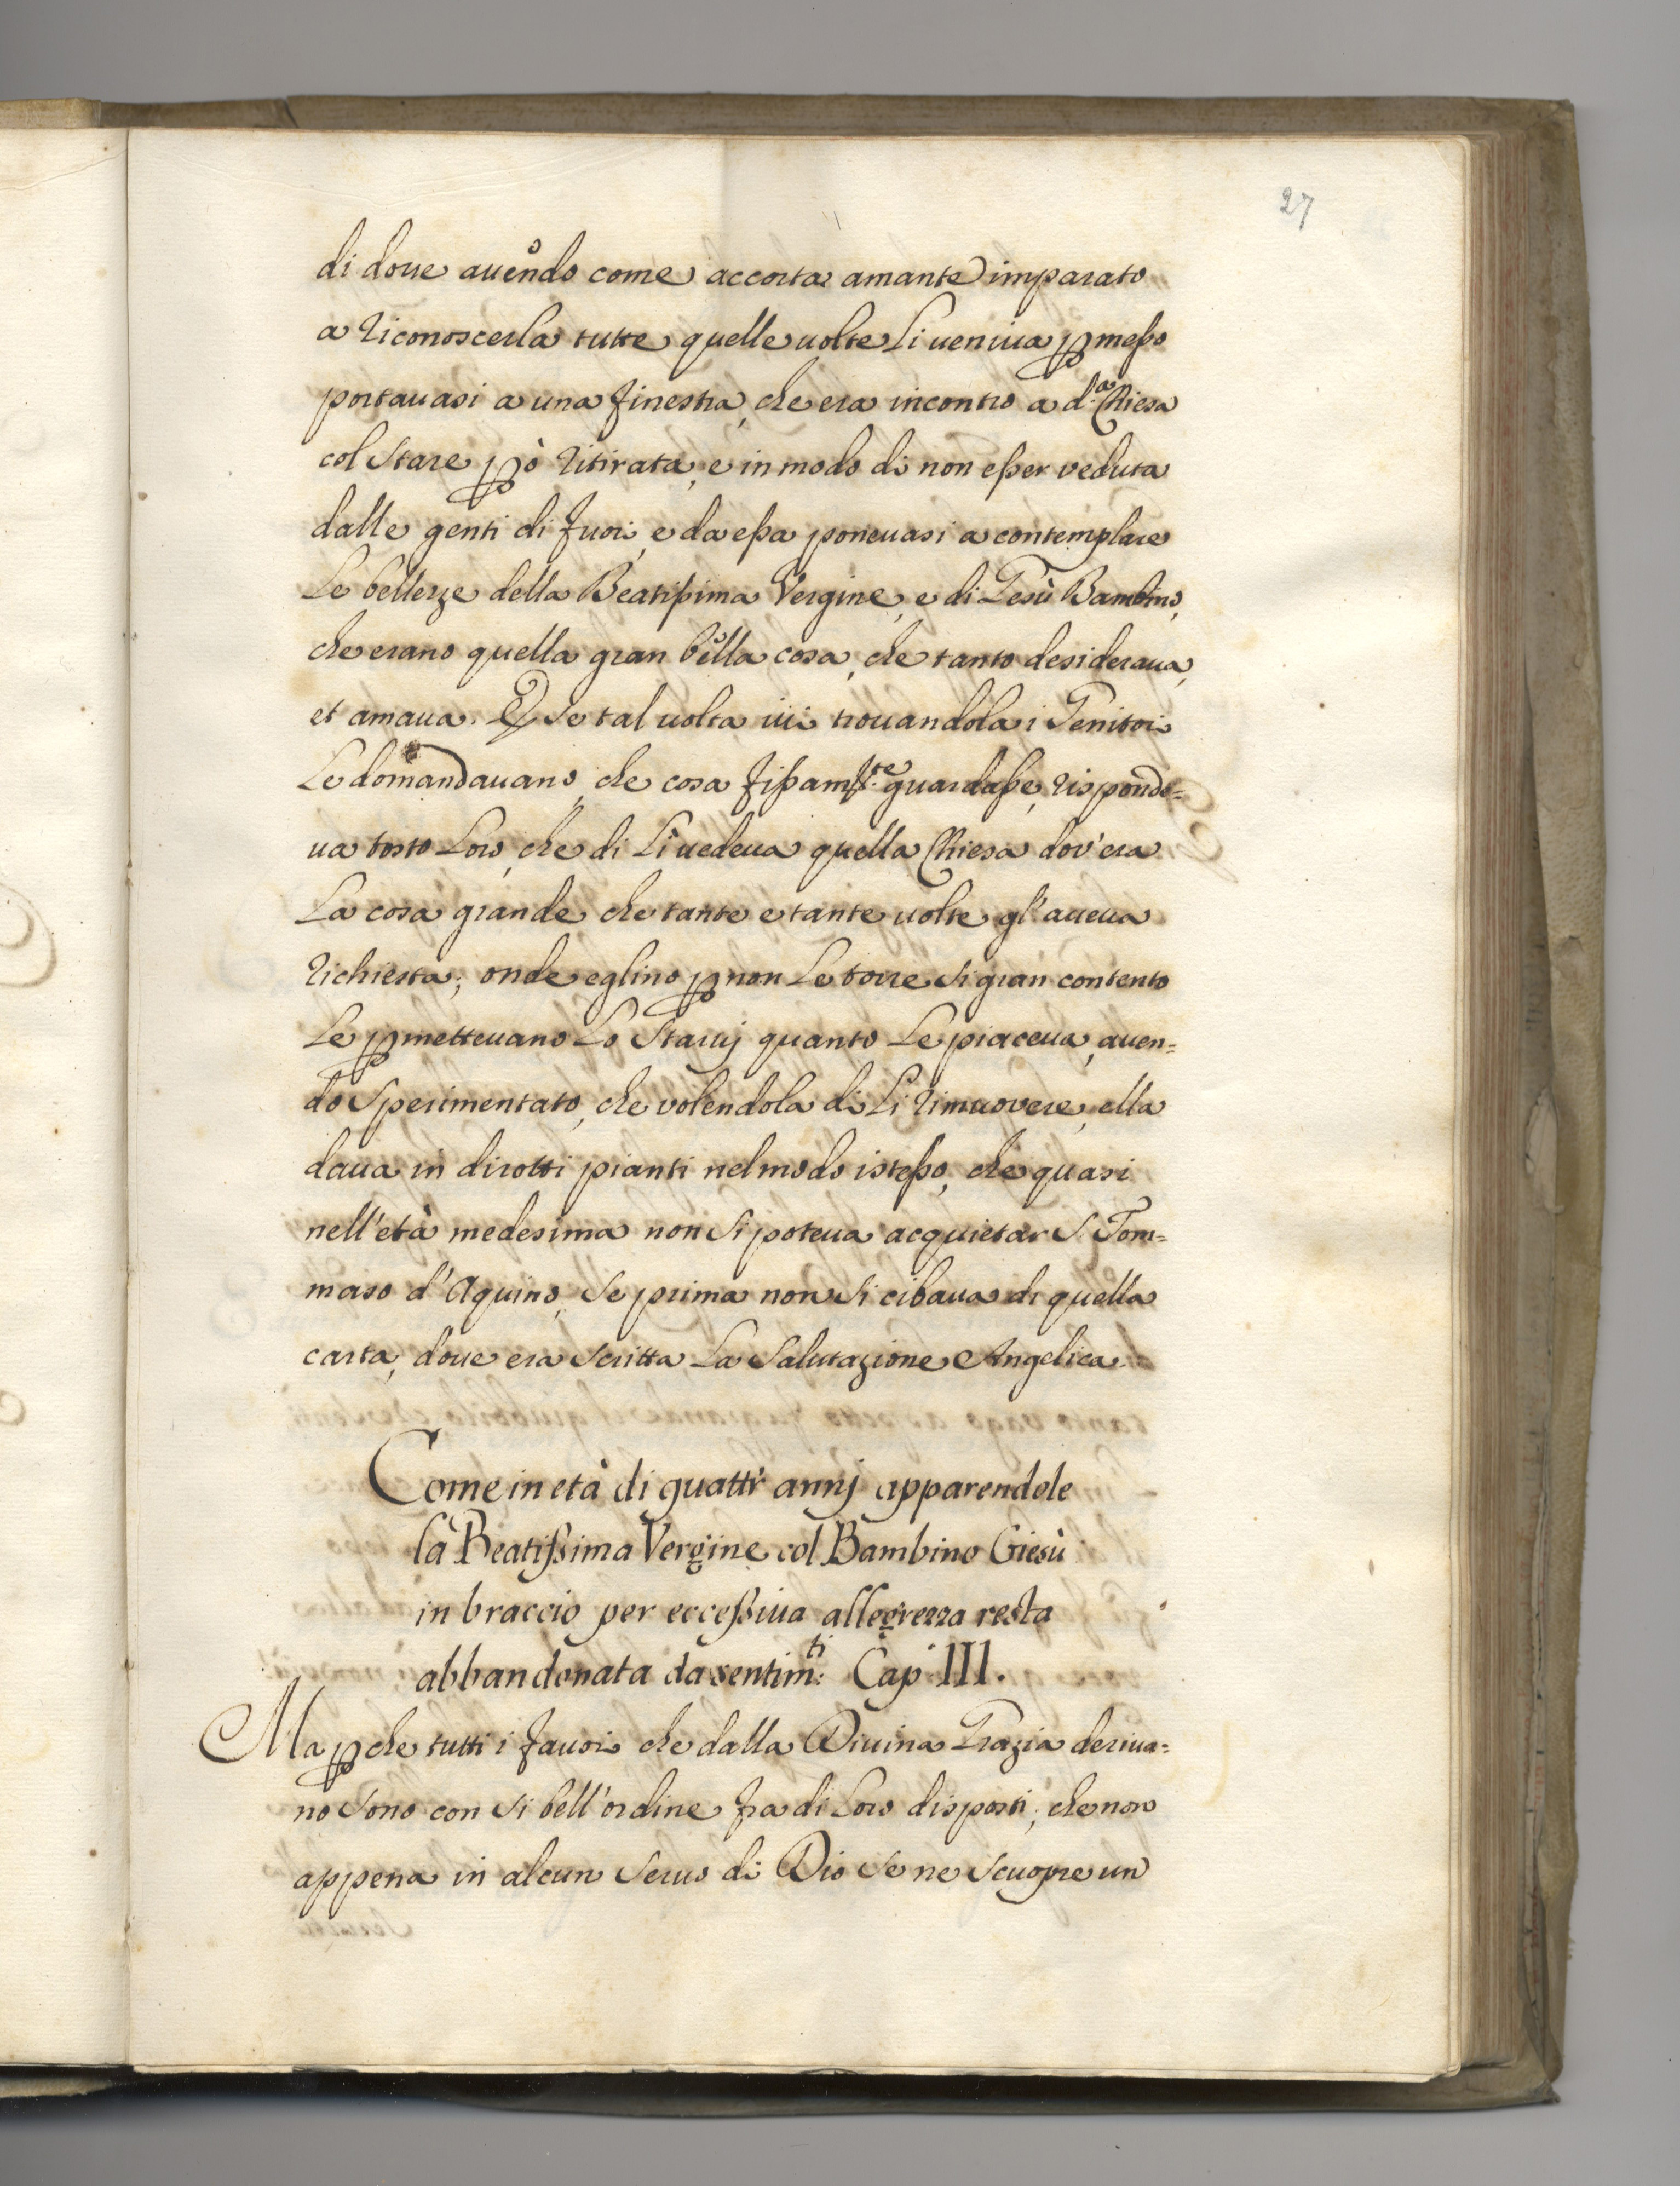 27
di doue auendo come accorta amante imparato
a riconoscerla tutte quelle uolte li ueniua ꝑmeßo
portauasi a una finestra, che era incontro a d.ᵃ Chiesa
col stare ꝑò ritirata, e in modo di non eßer veduta
dalle genti di fuori, e da eßa poneuasi a contemplare
le bellezze della Beatißima Vergine, e di Gesù Bambino,
che erano quella gran bella cosa, che tanto desideraua,
et amaua. E se tal uolta iui trouandola i Genitori
le domandauano, che cosa fißamᵗᵉ guardaße, risponde=
ua tosto loro, che di lì uedeua quella Chiesa dov'era
la cosa grande che tante e tante uolte gl'aueua
richiesta; onde eglino ꝑ non le torre si gran contento
le ꝑmetteuano lo starui quanto le piaceua, auen=
do sperimentato, che volendola di lì rimuovere, ella
daua in dirotti pianti nel modo isteßo, che quasi
nell'età medesima non si poteua acquietar S. Tom=
maso d'Aquino, se prima non si cibaua di quella
carta, doue era scritta la Salutazione Angelica.
Come in età di quattr' annj apparendole
la Beatißima Vergine col Bambino Giesù
in braccio per ecceßiua allegrezza resta
abbandonata da sentim.ᵗⁱ Cap III.
Ma ꝑche tutti i fauori che dalla Diuina Grazia deriua=
no sono con si bell'ordine fra di loro disposti, che non
appena in alcun seruo di Dio se ne scuopre un